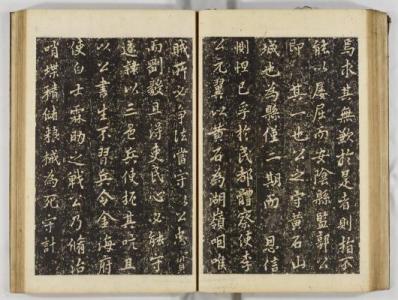 焉求其無歉於是者則指不
能以屢屈而安陰縣監郭公
即其一也公之守黃石山
城也為縣僅二期而恩信
惻怛已孚於民都體察使李
公元翼以黃石為湖嶺咽喉
賊所必爭法當守以公
而劉毅且得吏民心必能守
遂棣以三邑兵使扼其吭且
以公書生不習兵令金海府
使白士霖助之戰公乃脩治
哨堞積儲
械為死守計